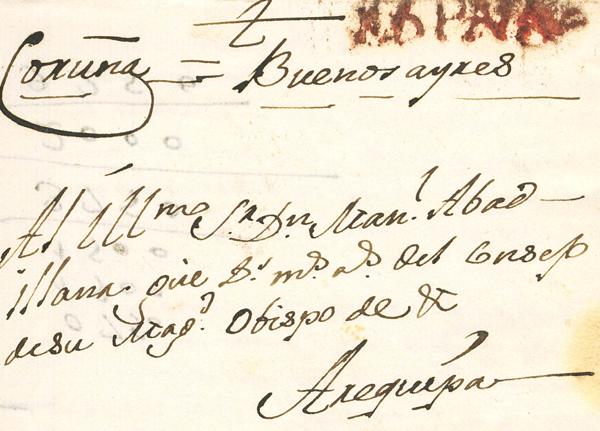 ESPAÑA
Coruña = Buenos ayres
Al Ill.mo S.r D.n Man.l Abad
illana que D.s m.s a.s del Consejo
desu Mag.d Obispo de &
Arequipa